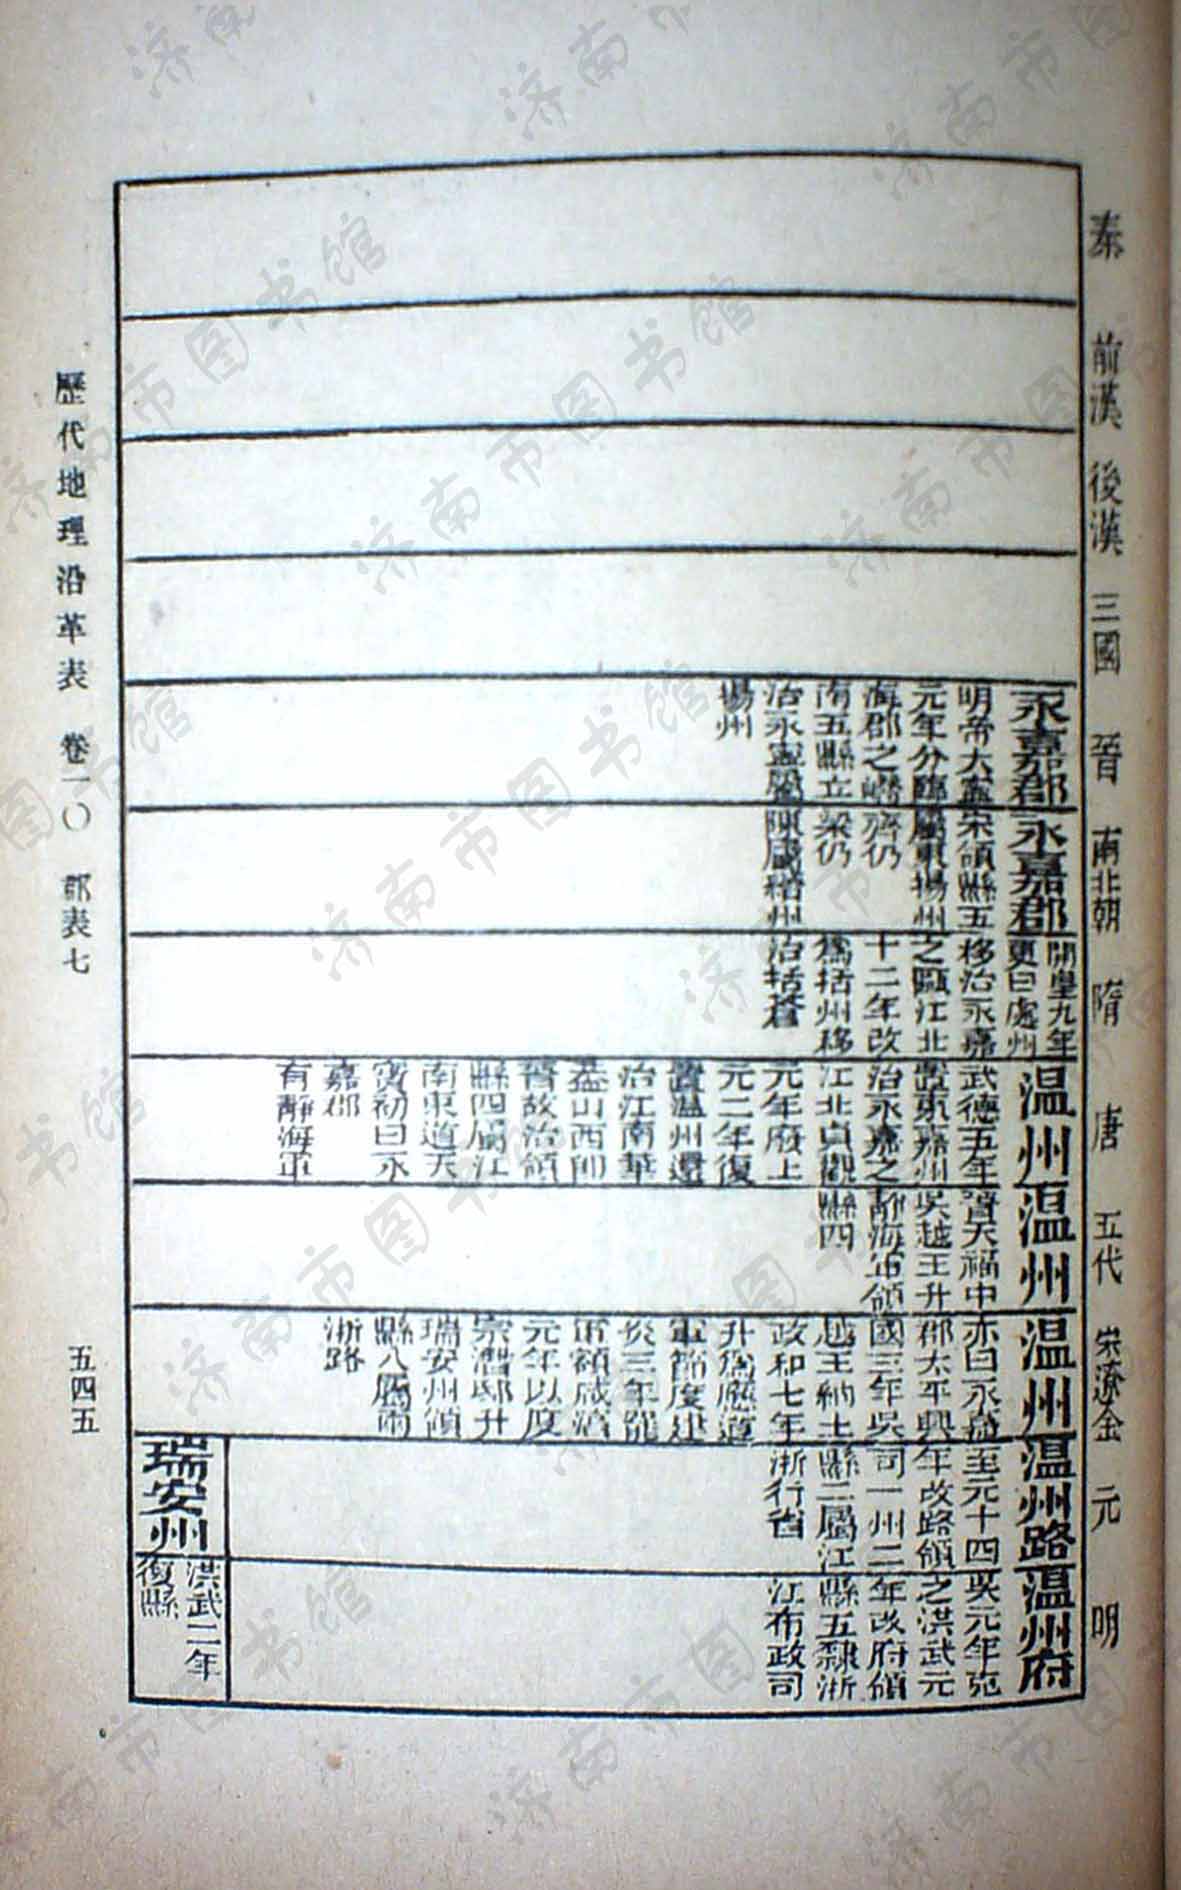 秦
前漢
後漢
三國
晉
南北朝
隋
唐
五代
宋遼金
元
明
永嘉郡
明帝太寧
元年分臨
海郡之嶠
南五縣立
治永寧屬
揚州
永嘉郡
宋領縣五
屬東揚州
齊仍
梁仍
陳屬縉州
開皇九年
更曰處州
移治永嘉
之甌江北
十二年改
爲括州移
治括蒼
温州
武德五年
置東嘉州
治永嘉之
江北貞觀
元年廢上
元二年復
置温州還
治江南華
蓋山西卽
晉故治領
縣四屬江
南東道天
寶初曰永
嘉郡
有靜海軍
温州
晉天福中
吳越王升
靜海軍領
縣四
温州
亦曰永嘉
郡太平興
國三年吳
越王納土
政和七年
升爲應道
軍節度建
炎三年罷
軍額咸淳
元年以度
宗潛邸升
瑞安州領
縣八屬兩
浙路
温州路
至元十四
年改路領
司一州二
縣二屬江
浙行省
温州府
吳元年克
之洪武元
年改府領
縣五隸浙
江布政司
瑞安州
洪武二年
復縣
歷代地理沿革表 卷一〇 郡表七
五四五
济南市图书馆